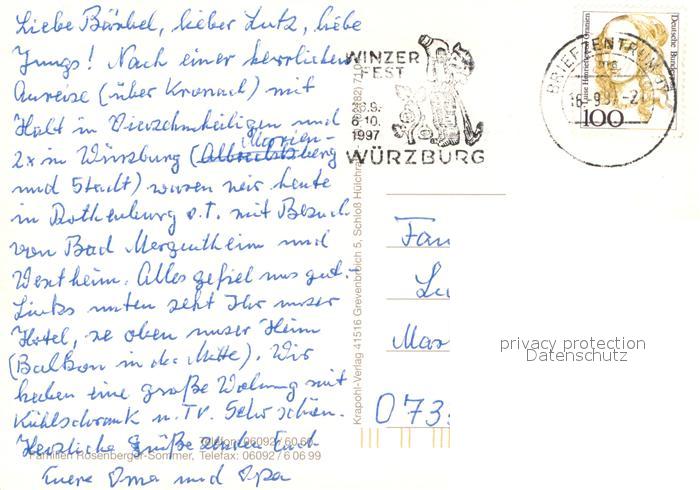 Liebe Bärbel, lieber Lutz, liebe
Jungs! Nach einer herrlichen
Anreise (über Kronach) mit
Halt in Vierzehnheiligen und
2x in Würzburg (Marienberg
und Stadt) waren wir heute
in Rothenburg o.T. mit Besuch
von Bad Mergentheim und
Wertheim. Alles gefiel uns gut.
Links unten seht Ihr unser
Hotel, re oben unser Heim
(Balkon in der Mitte). Wir
haben eine große Wohnung mit
Kühlschrank u. TV. Sehr schön.
Herzliche Grüße senden Euch
Eure Oma und Opa
Telefon: 06092/60 66
Familien Rosenberger-Sommer, Telefax: 06092/6 06 99
WINZER
FEST
26.9.
6.10.
1997
WÜRZBURG
BRIEFZENTRUM
16.-9.97.-21
Deutsche Bundespost
100
Krapohl-Verlag 41516 Grevenbroich 5, Schloß Hülchrath
Fam
Lu
Max
073
privacy protection
Datenschutz